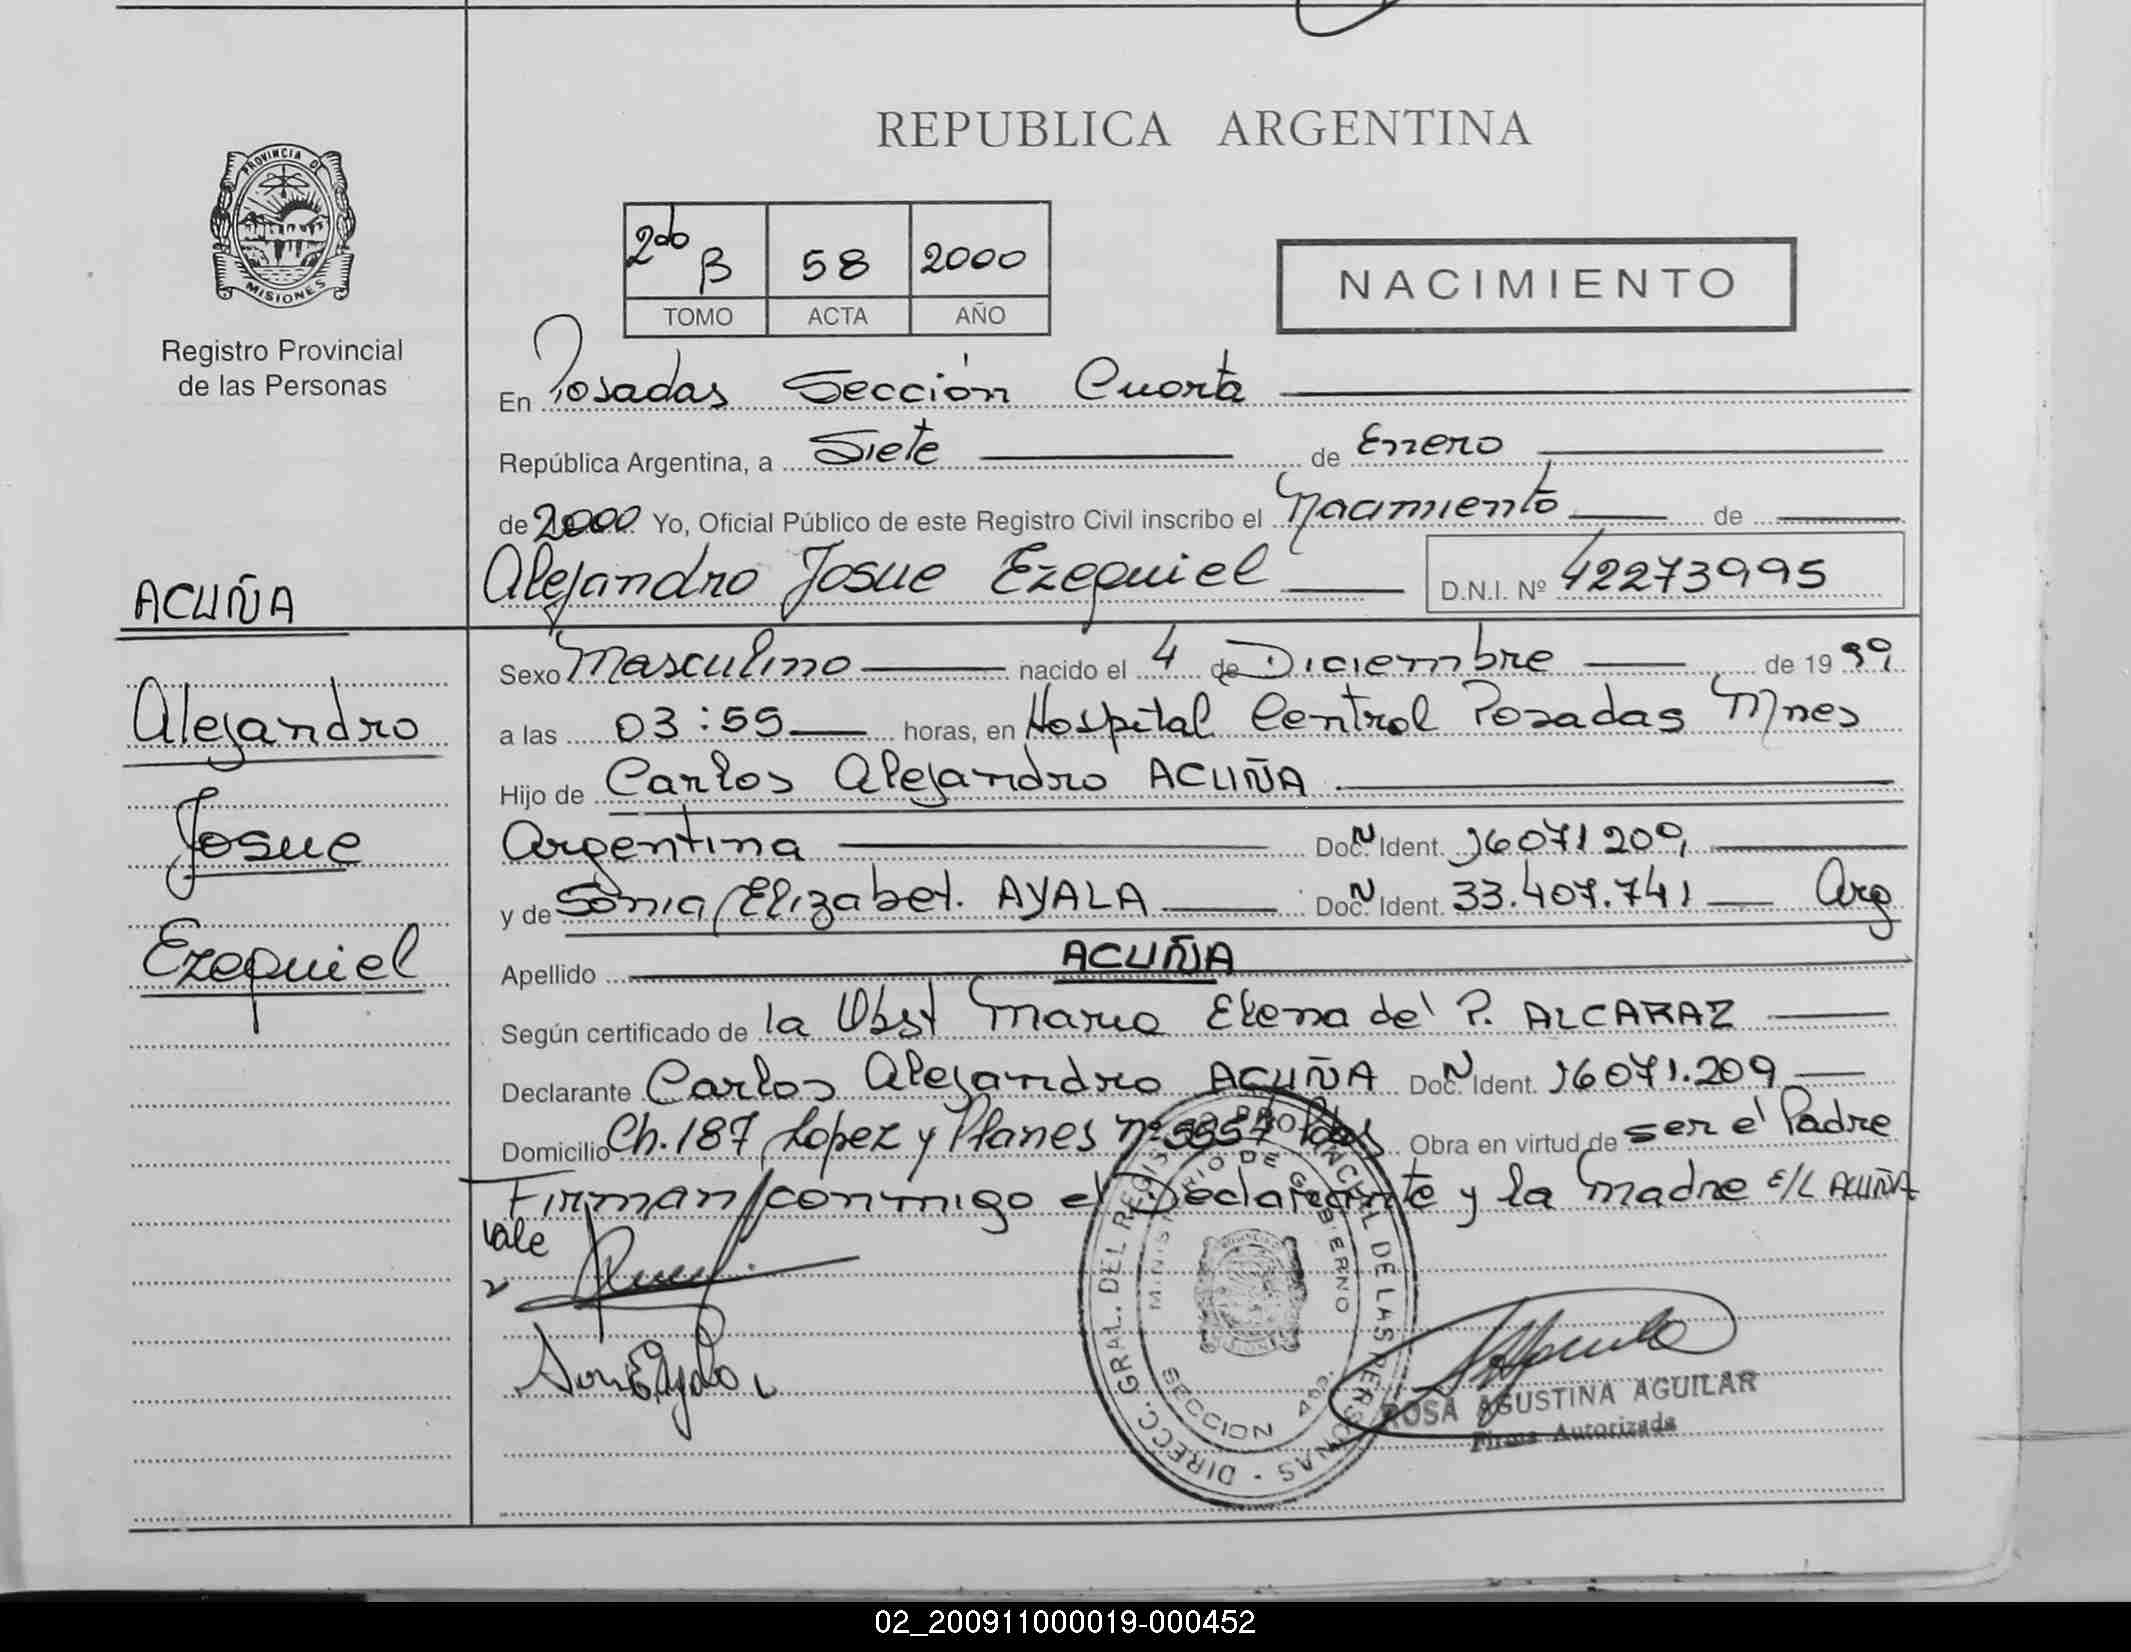 REPUBLICA ARGENTINA
PROVINCIA DE
MISIONES
Registro Provincial
de las Personas
2do B 58 2000
TOMO ACTA AÑO
NACIMIENTO
En Posadas Sección Cuarta
República Argentina, a Siete de Enero
de 2000 Yo, Oficial Público de este Registro Civil inscribo el Nacimiento de
Alejandro Josue Ezequiel D.N.I. Nº 42273995
ACUÑA
Alejandro
Josue
Ezequiel
Sexo Masculino nacido el 4 de Diciembre de 19 99
a las 03:55 horas, en Hospital Central Posadas Mnes
Hijo de Carlos Alejandro ACUÑA
Argentina Doc. N Ident. 16071209
y de Sonia Elizabet. AYALA Doc. N Ident. 33.407.741 Arg
Apellido ACUÑA
Según certificado de la Obst Maria Elena del P. ALCARAZ
Declarante Carlos Alejandro ACUÑA Doc. N Ident. 16071.209
Domicilio Ch. 187 Lopez y Planes Nº Pdas Obra en virtud de ser el Padre
Firman conmigo el Declarante y la Madre E/L ACUÑA
Vale
DIRECC. GRAL. DEL REGISTRO PROVINCIAL DE LAS PERSONAS
MINISTERIO DE GOBIERNO
SECCION 4ta.
ROSA AGUSTINA AGUILAR
Firma Autorizada
02_200911000019-000452